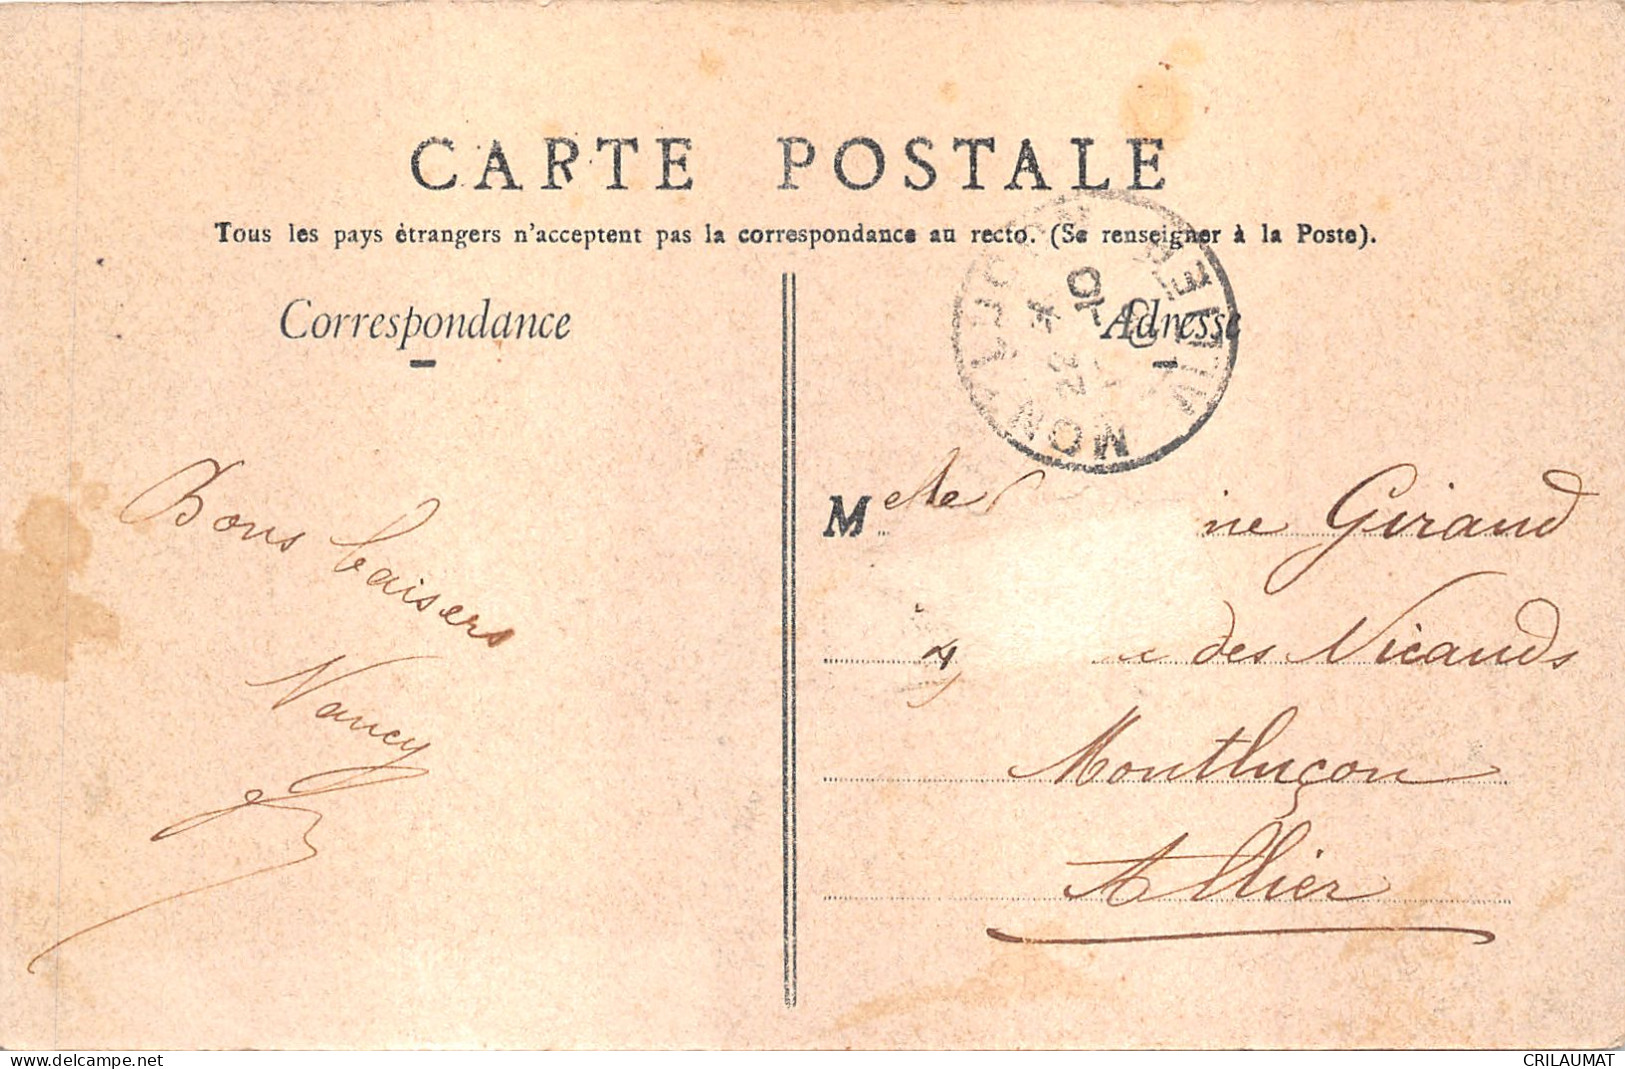 CARTE POSTALE
Tous les pays étrangers n'acceptent pas la correspondance au recto. (Se renseigner à la Poste).
Correspondance
Adresse
MONTLUÇON
10
22
Bons baisers
Nancy
Melle ne Giraud
4 des Nicauds
Montluçon
Allier
CRILAUMAT